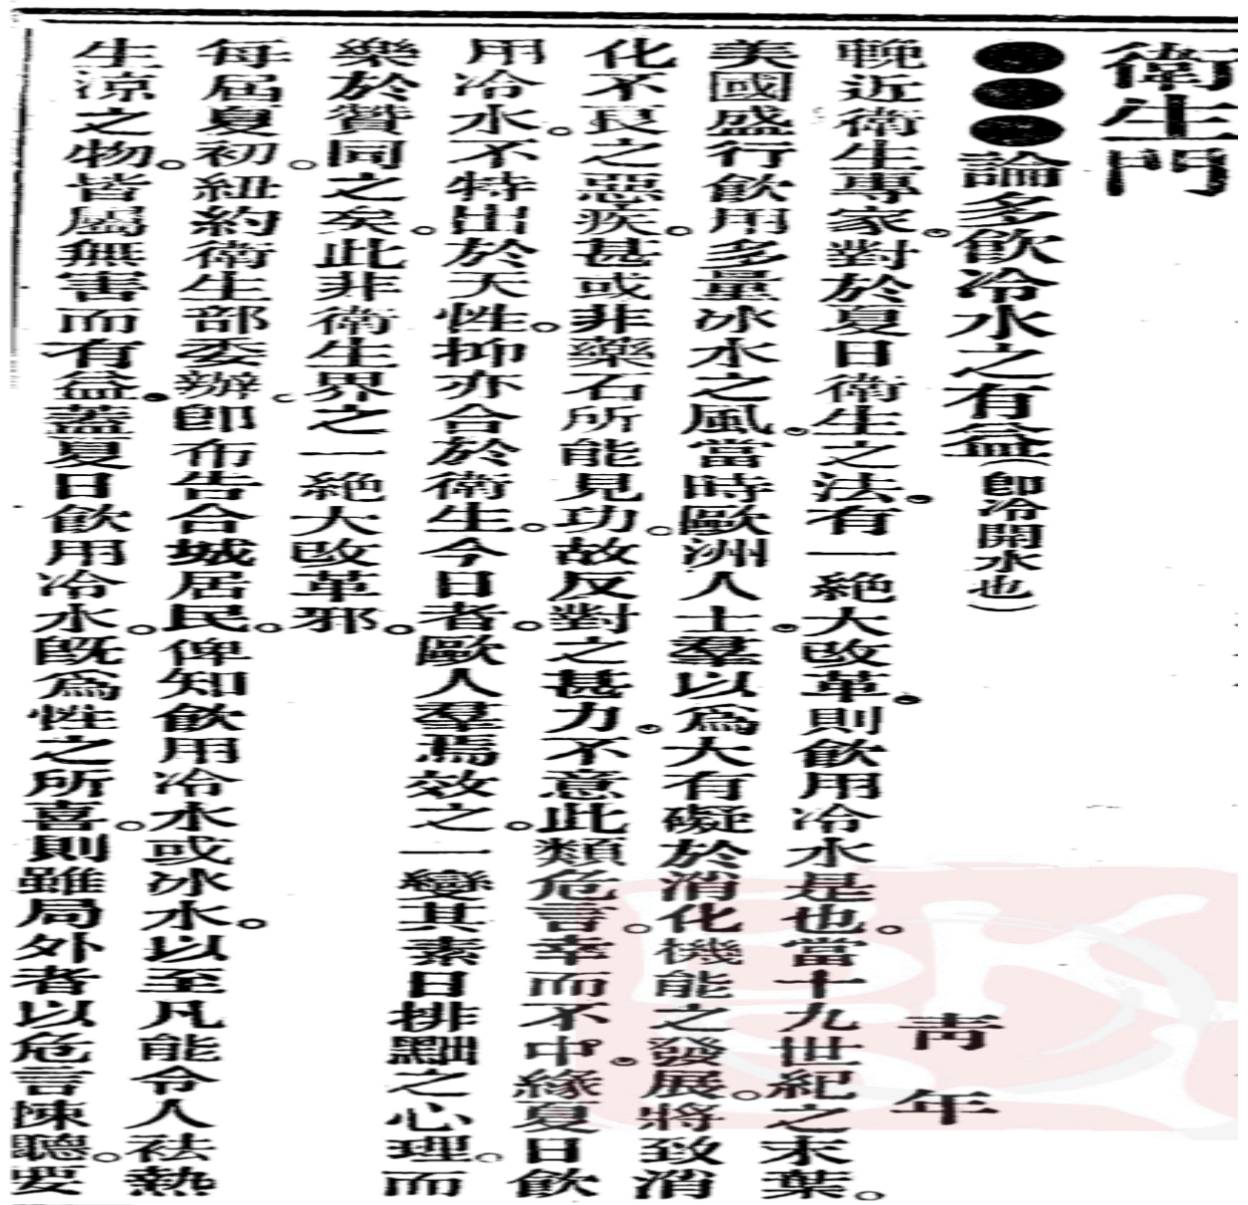 衛生門
●●●論多飲冷水之有益(卽冷開水也)
靑年
輓近衛生專家。對於夏日衛生之法。有一絕大改革。則飲用冷水是也。當十九世紀之末葉。
美國盛行飲用多量冰水之風。當時歐洲人士。羣以爲大有礙於消化機能之發展。將致消
化不良之惡疾。甚或非藥石所能見功。故反對之甚力。不意此類危言。幸而不中。緣夏日飲
用冷水。不特出於天性。抑亦合於衛生。今日者。歐人羣焉效之。一變其素日排黜之心理。而
樂於贊同之矣。此非衛生界之一絕大改革邪。
每屆夏初。紐約衛生部委辦。卽布告合城居民。俾知飲用冷水或冰水。以至凡能令人袪熱
生涼之物。皆屬無害而有益。蓋夏日飲用冷水。旣爲性之所喜。則雖局外者以危言悚聽。要